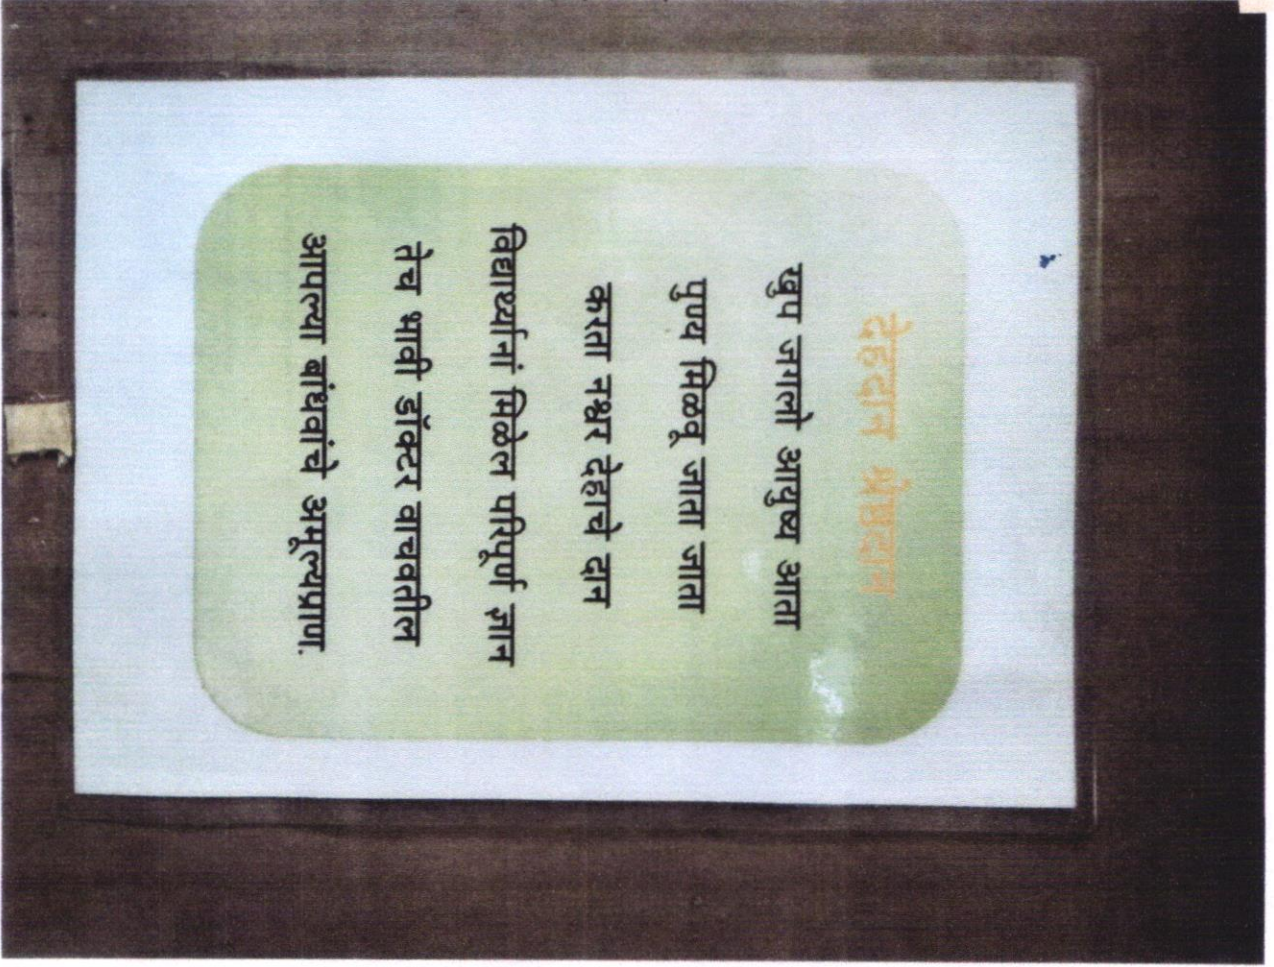 देहदान श्रेष्ठदान
खुप जगलो आयुष्य आता
पुण्य मिळवू जाता जाता
करता नश्वर देहाचे दान
विद्यार्थ्यांनां मिळेल परिपूर्ण ज्ञान
तेच भावी डॉक्टर वाचवतील
आपल्या बांधवांचे अमूल्यप्राण.